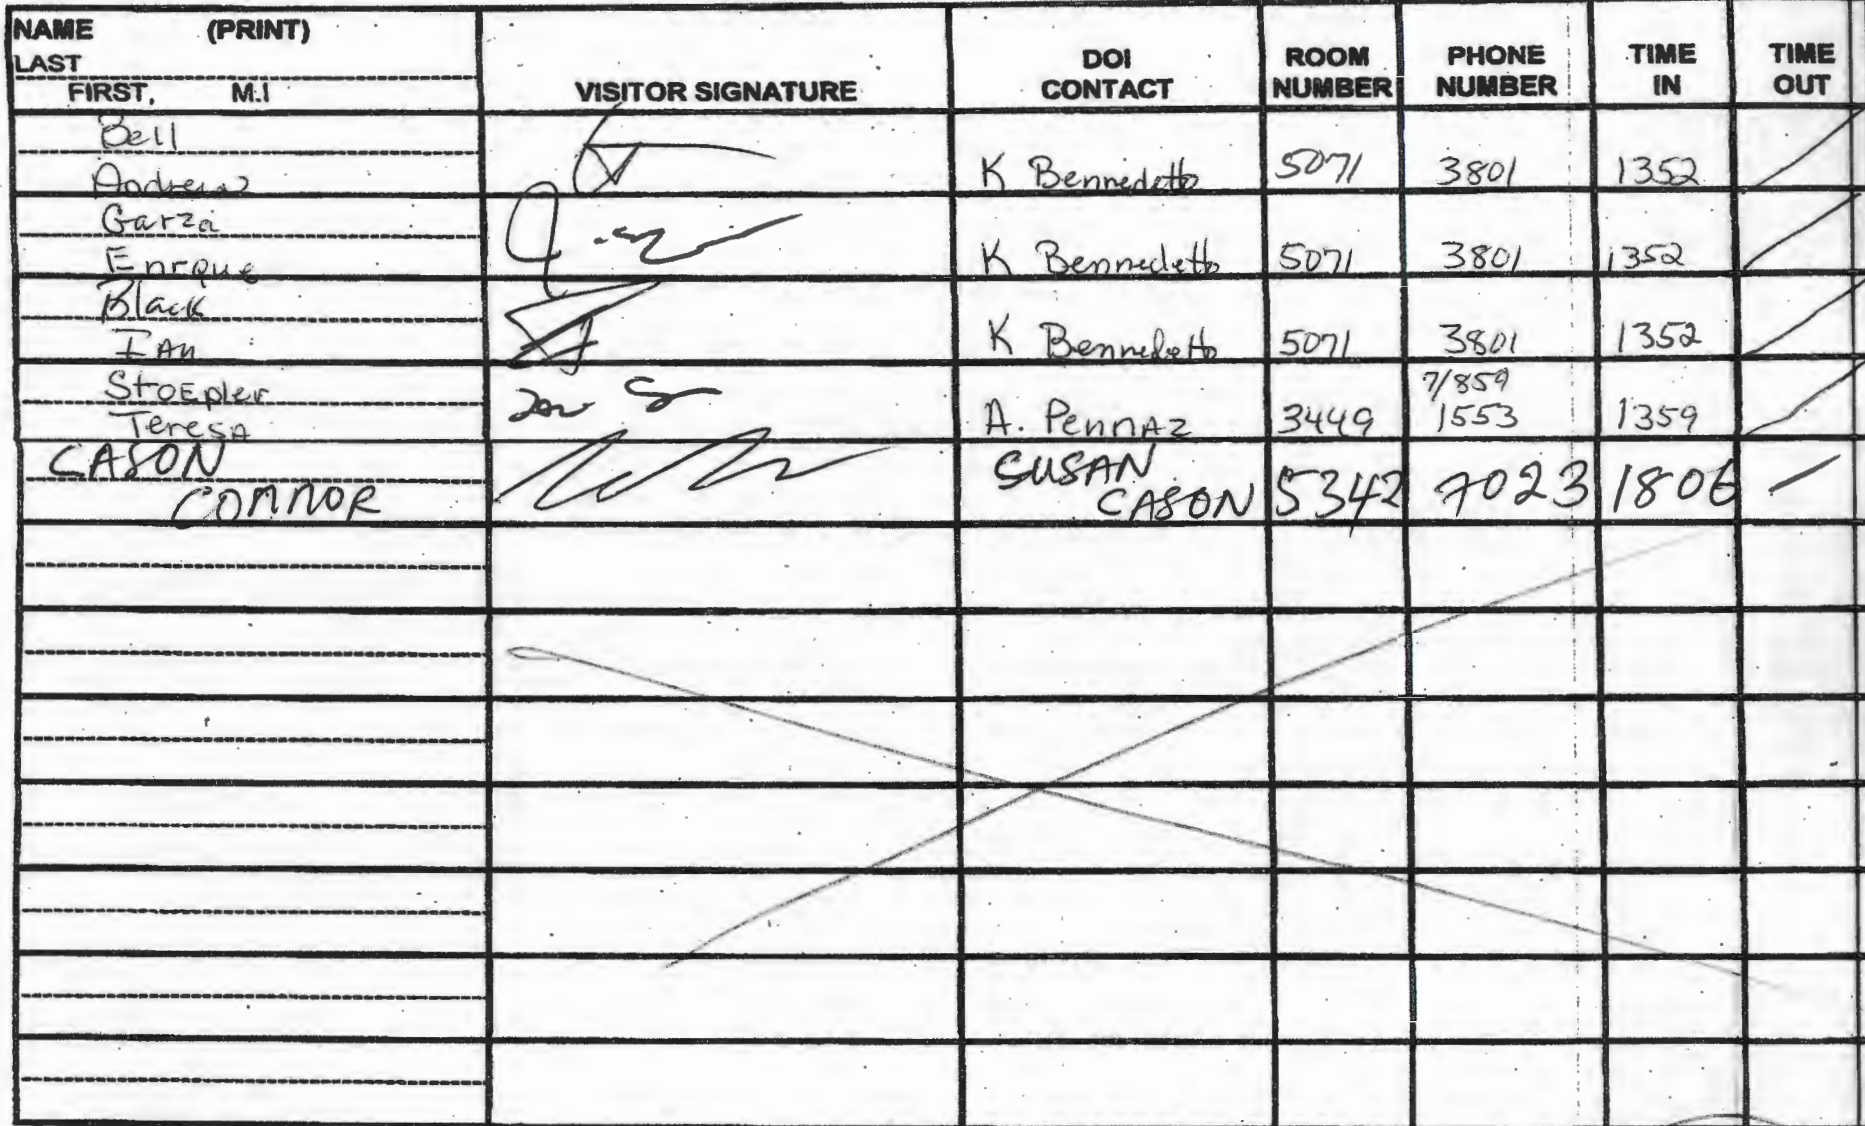 NAME (PRINT)
LAST
FIRST, M.I
VISITOR SIGNATURE
DOI CONTACT
ROOM NUMBER
PHONE NUMBER
TIME IN
TIME OUT
Bell
Andrew K Bennedetto 5071 3801 1352
Garza
Enrque K Bennedetto 5071 3801 1352
Black
IAn K Bennedetto 5071 3801 1352
StoEpler 7/859
TeresA A. PennAz 3449 1553 1359
CASON SUSAN
CONNOR CASON 5342 7023 1806